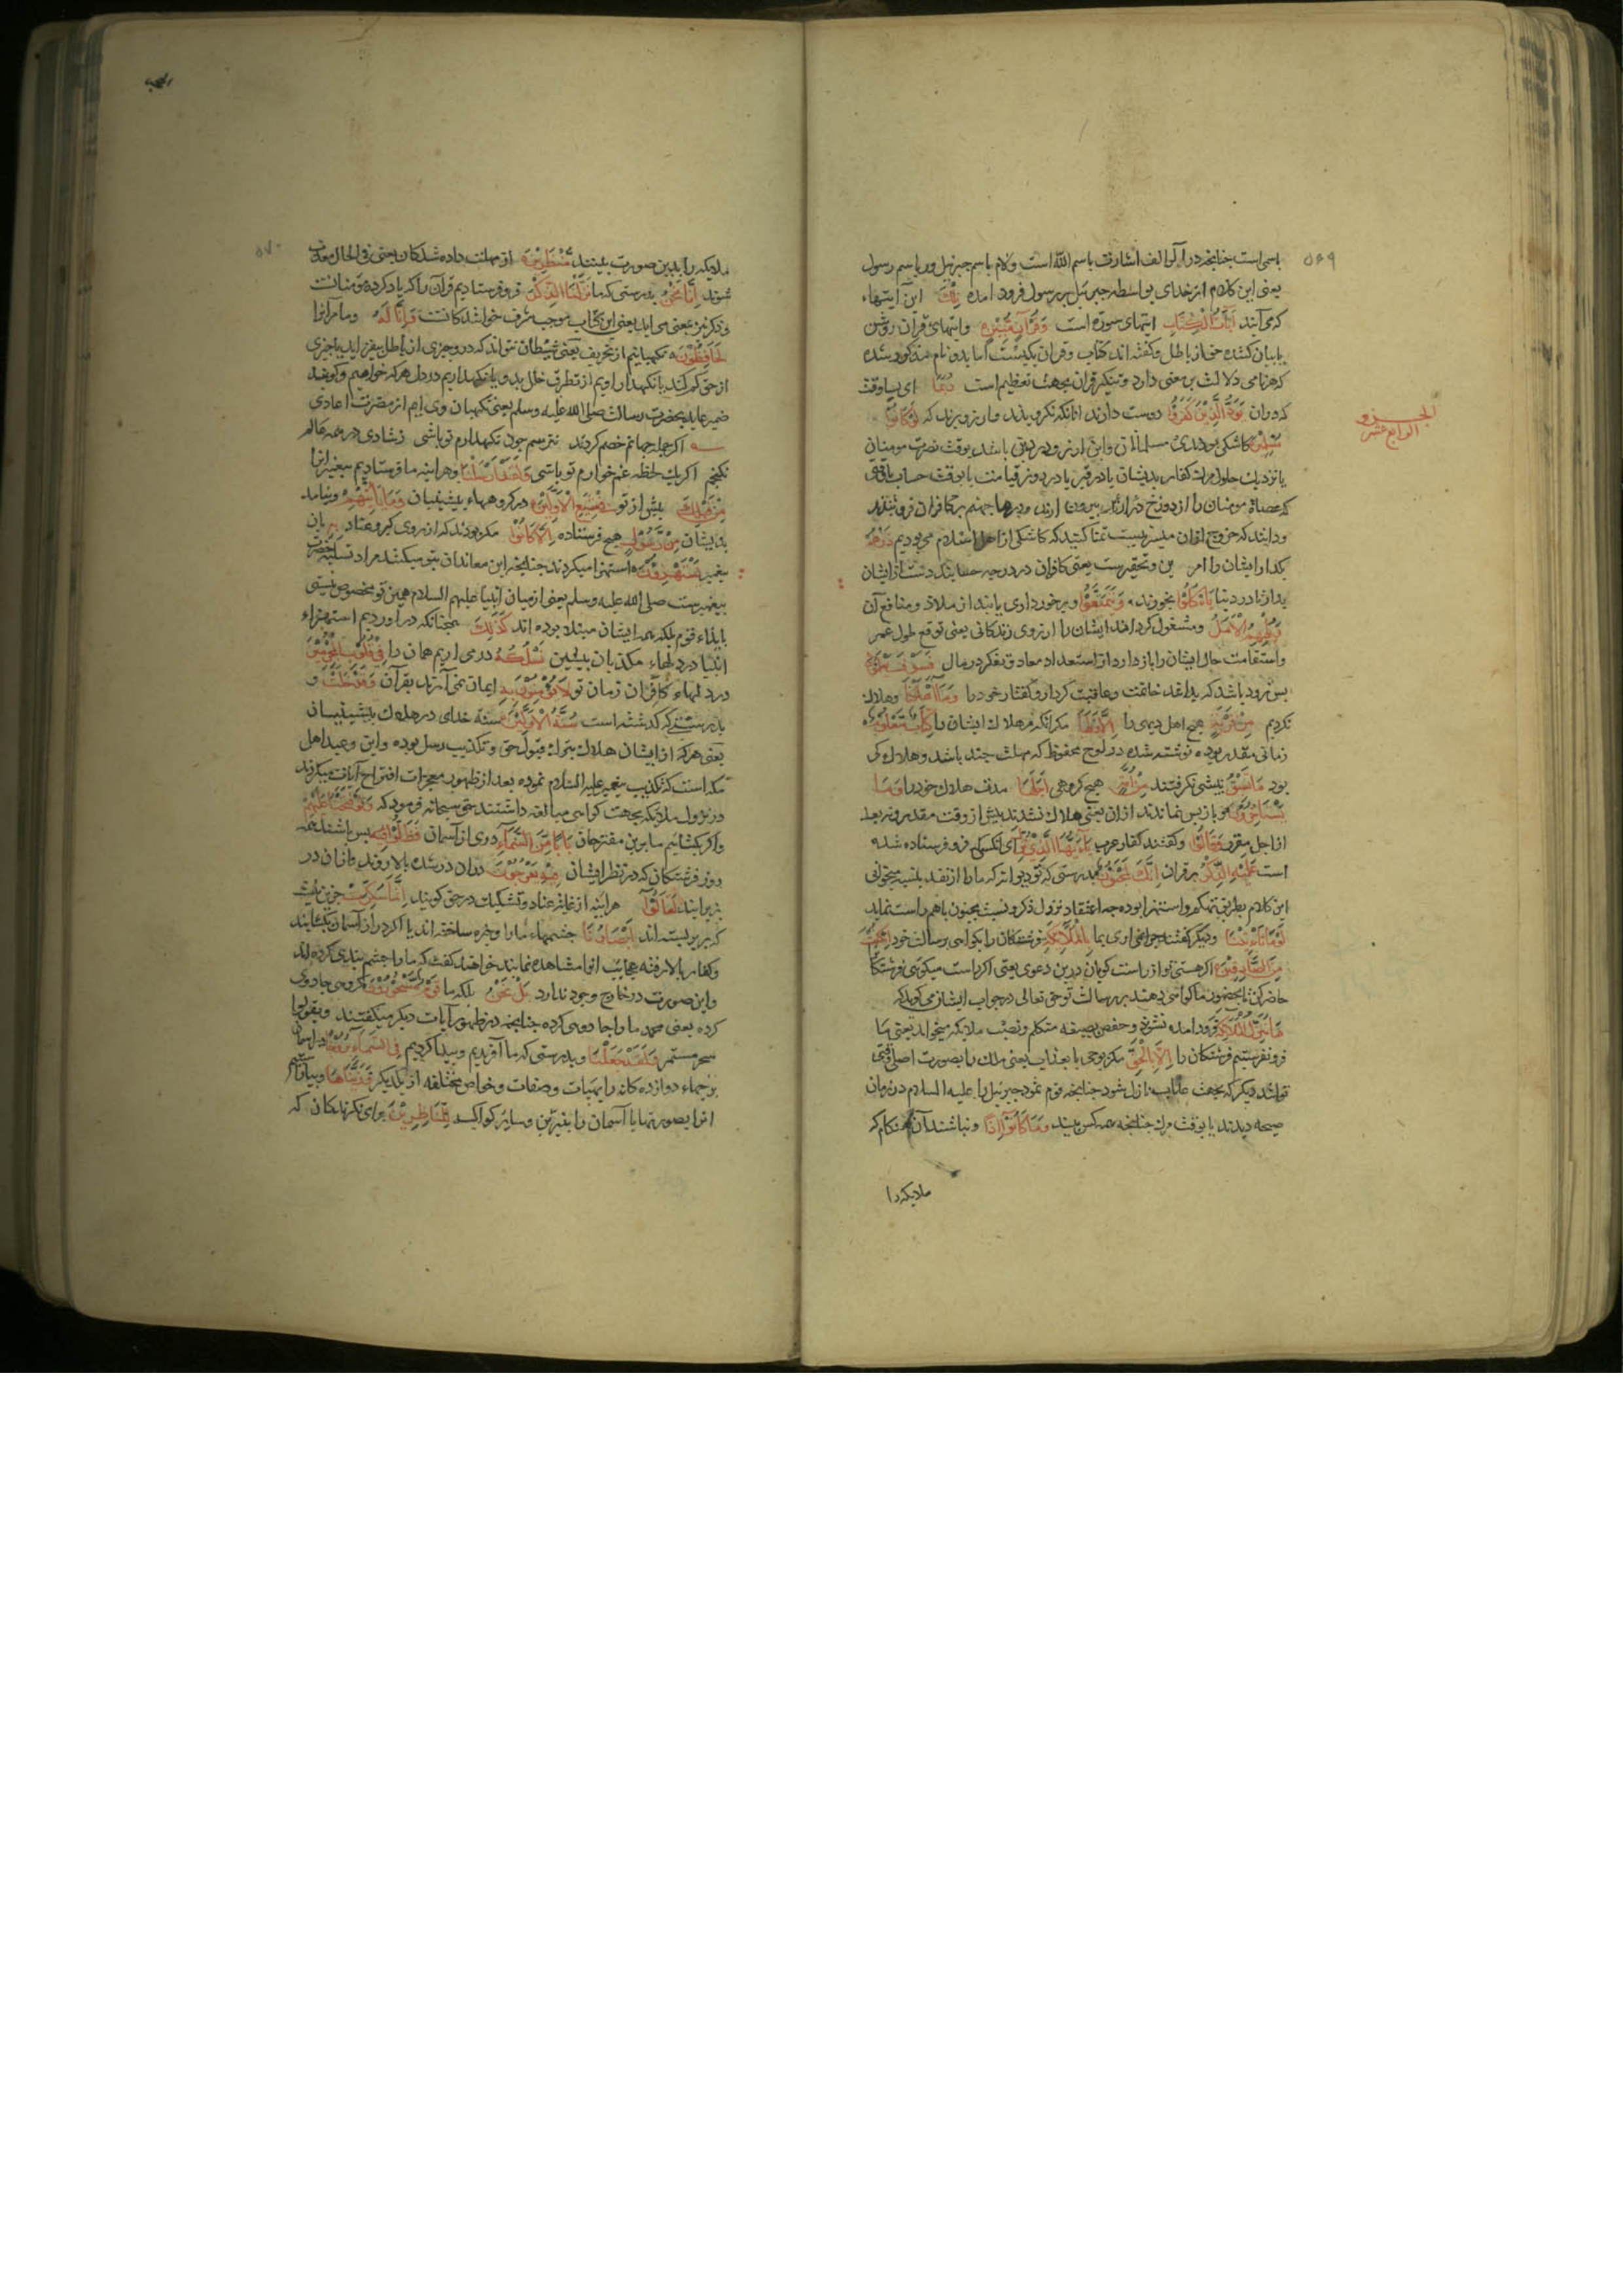 ۵۶۹
باسمی است چنانچه در الر الف اشارت باسم الله است ولام باسم جبرئیل ورا باسم رسول
یعنی این کلام از خدای بواسطه جبرئیل بر رسول فرود آمده تِلْكَ این آیتهاء
که می‌آیند آیَاتُ الْكِتَابِ آیتهای سوره است وَقُرْآنٍ مُبِینٍ وآیتهای قرآن روشن
یا بیان کننده حق از باطل وگفته اند کتاب وقرآن یکیست اما بدو نام مذکور شده
که هر نامی دلالت بر معنی دارد وتنکیر قرآن بجهت تعظیم است رُبَمَا ای بسا وقت
که در آن یَوَدُّ الَّذِینَ كَفَرُوا دوست دارند آنانکه نکرویدند وآرزو برند که لَوْ كَانُوا
مُسْلِمِینَ کاشکی بودندی مسلمانان واین آرزو بردن باشد بوقت نصرت مومنان
یا نزدیک حلول مرک کفار بدیشان یا در قبر یا در روز قیامت یا بوقت حساب یا وقتی
که عصاة مومنان را از دوزخ بیرون آرند ودرهاء جهنم بر کافران فرو بندند
ودانند که خروج ازان میسر نیست تمنا کنند که کاشکی از اهل اسلام می بودیم ذَرْهُمْ
بکذار ایشان را امر وتحقیرست یعنی کافران در درجه حسابند دست از ایشان
بدار تا در دنیا یَأْكُلُوا بخورند وَیَتَمَتَّعُوا وبرخورداری یابند از ملاذ ومنافع آن
وَیُلْهِهِمُ الْأَمَلُ ومشغول کرداند ایشان را آرزوی زندکانی یعنی توقع طول عمر
واستقامت حال ایشان را باز دارد از استعداد معاد وتفکر در مال فَسَوْفَ یَعْلَمُونَ
پس زود باشد که بدانند خاتمت وعاقبت کردار وکفتار خود را وَمَا أَهْلَكْنَا وهلاک
نکردیم مِنْ قَرْیَةٍ هیچ اهل دیهی را إِلَّا وَلَهَا مکر آنکه مر هلاک ایشان را كِتَابٌ مَعْلُومٌ
زمانی مقدر بوده نوشته شده در لوح محفوظ که مهلت چند باشد وهلاک کی
بود مَا تَسْبِقُ پیشی نکرفتند مِنْ أُمَّةٍ هیچ کروهی أَجَلَهَا مدت هلاک خود را وَمَا
یَسْتَأْخِرُونَ وباز پس نماندند ازان یعنی هلاک نشدند پیش از وقت مقدر ونه بعد
از اجل مقرر وَقَالُوا وکفتند کفار عرب یَا أَیُّهَا الَّذِی نُزِّلَ ای آنکسی که فرو فرستاده شده
است عَلَیْهِ الذِّكْرُ بر او قرآن إِنَّكَ لَمَجْنُونٌ بدرستی که تو دیوانه که ما را از نقد بنسیه میخوانی
این کلام بطریق تهکم واستهزا بوده چه اعتقاد نزول ذکر ونسبت بجنون باهم راست نیاید
لَوْ مَا تَأْتِینَا ودیکر کفتند چرا نمی آری بما بِالْمَلَائِكَةِ فرشتکان را تا کواهی برسالت خود إِنْ كُنْتَ
مِنَ الصَّادِقِینَ اکر هستی تو از راست کویان درین دعوی یعنی اکر راست میکویی فرشتکان
حاضر کن تا بحضور ما کواهی دهند بر رسالت تو حق تعالی در جواب ایشان می کوید که
مَا نُنَزِّلُ الْمَلَائِكَةَ فرود آمده نشوند وحفص بصیغه متکلم ونصب ملائکه میخواند یعنی ما
فرو نفرستیم فرشتکان را إِلَّا بِالْحَقِّ مکر بوحی یا بعذاب یعنی ملک را بصورت اصلی وقتی
توانند دید که بجهت عذاب نازل شود چنانچه قوم ثمود جبرئیل را علیه السلام در زمان
صیحه دیدند یا بوقت مرک چنانچه همه کس بیند وَمَا كَانُوا إِذًا ونباشند آن هنکام که
ملایکه را
الجزو
الرابع عشر
۵۷۰
ملایکه را بدین صورت بینند مُنْظَرِینَ از مهلت داده شدکان یعنی فی الحال معذب
شوند إِنَّا نَحْنُ بدرستی که ما نَزَّلْنَا الذِّكْرَ فرو فرستادیم قرآن را که یاد کرد مومنانست
وذکر نیز بمعنی می آید یعنی این کتاب موجب شرف خوانندکانست وَإِنَّا لَهُ وما مر آنرا
لَحَافِظُونَ نکهبانیم از تحریف یعنی شیطان نتواند که در وچیزی از باطل بیفزاید یا چیزی
از حق کم کند یا نکهداریم از تطرق خلل بدو یا نکهداریم در دل هر که خواهیم وکویند
ضمیر عاید بحضرت رسالت صلی الله علیه وسلم یعنی نکهبان وی ایم از مضرت اعادی
اکر جمله جهانم خصم کردند نترسم چون نکهدارم تو باشی ز شادی در همه عالم
نکنجم اکر یک لحظه غمخوارم تو باشی وَلَقَدْ أَرْسَلْنَا وهر آینه ما فرستادیم پیغمبرانرا
مِنْ قَبْلِكَ پیش از تو فِی شِیَعِ الْأَوَّلِینَ در کروههاء پیشینیان وَمَا یَأْتِیهِمْ ونیامد
بدیشان مِنْ رَسُولٍ هیچ فرستاده إِلَّا كَانُوا مکر بودند که از روی کبر وعناد بِهِ بآن
پیغمبر یَسْتَهْزِئُونَ استهزا میکردند چنانچه این معاندان بتو میکنند مراد تسلیه حضرت
پیغمبرست صلی الله علیه وسلم یعنی از میان انبیا علیهم السلام همین تو مخصوص نیستی
بایذاء قوم بلکه همه ایشان مبتلا بوده اند كَذَلِكَ همچنانکه در آوردیم استهزاء
انبیا در دلهاء مکذبان پیشین نَسْلُكُهُ در می آریم همان را فِی قُلُوبِ الْمُجْرِمِینَ
در دلهاء کافران زمان تو لَا یُؤْمِنُونَ بِهِ ایمان نمی آرند بقرآن وَقَدْ خَلَتْ و
بدرستی که کذشته است سُنَّةُ الْأَوَّلِینَ سنة خدای در هلاک پیشینیان
یعنی هر که از ایشان هلاک بترک قبول حق وتکذیب رسل بوده واین وعید اهل
مکه است که تکذیب پیغمبر علیه السلام نموده بعد از ظهور معجزات اقتراح آیات میکردند
در نزول ملایکه بجهت کواهی مبالغه داشتند حق سبحانه فرمود که وَلَوْ فَتَحْنَا عَلَیْهِمْ
واکر بکشاییم ما برین مقترحان بَابًا مِنَ السَّمَاءِ دری از آسمان فَظَلُّوا پس باشند همه
روز فرشتکان که در نظر ایشان فِیهِ یَعْرُجُونَ دران در شده بالا روند وازان در
بزیر آیند لَقَالُوا هر آینه از غایت عناد وتشکیک در حق کویند إِنَّمَا سُكِّرَتْ جزین نیست
که بر بر بسته اند أَبْصَارُنَا چشمهاء ما را وخیره ساخته اند یا اکر در از آسمان بکشایند
وکفار بالا رفته عجایب آنرا مشاهده نمایند خواهند کفت که ما را چشم بندی کرده اند
واین صورت در خارج وجود ندارد بَلْ نَحْنُ بلکه ما قَوْمٌ مَسْحُورُونَ کروهی جادوی
کرده یعنی محمد ما را جادویی کرده چنانچه در ظهور آیات دیکر میکفتند ویقولوا
سحر مستمر وَلَقَدْ جَعَلْنَا وبدرستی که ما آفریدیم وپیدا کردیم فِی السَّمَاءِ بُرُوجًا در آسمان
برجهاء دوازده کانه را بهیات وصفات وخواص مختلفه از یکدیکر وَزَیَّنَّاهَا وبیاراستیم
آنرا بصورتها یا آسمان را بنیرین وسایر کواکب لِلنَّاظِرِینَ برای نکرندکان که